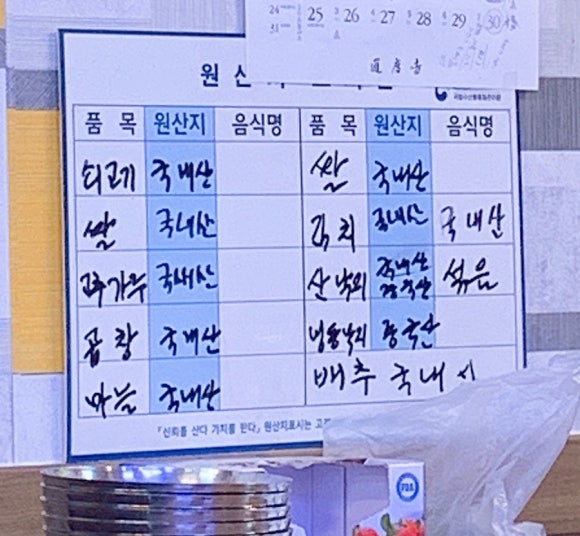 24 25 26 27 28 29 30
31
원산지
품 목 원산지 음식명 품 목 원산지 음식명
쇠고기 국내산 쌀 국내산
쌀 국내산 김치 국내산 국내산
고추가루 국내산 산낙지 국내산 중국산 섞음
곱창 국내산 냉동낙지 중국산
마늘 국내산 배추 국내
「신뢰를 산다 가치를 판다」 원산지표시는 고
FDA